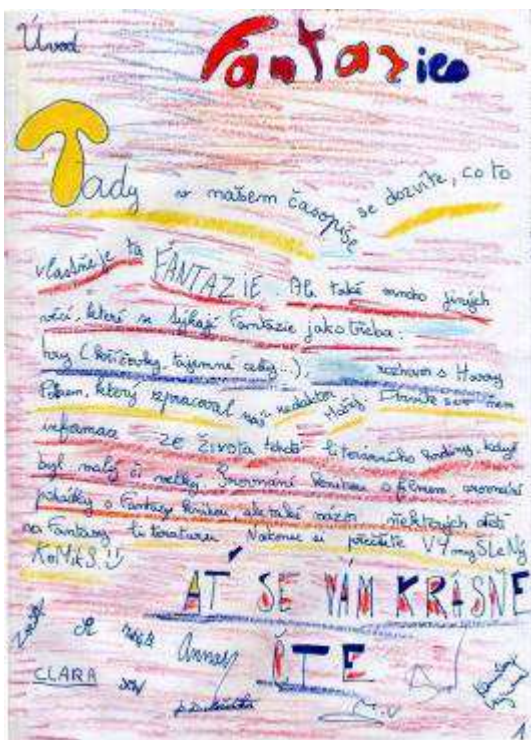 Úvod
Fantazieo
Tady v našem časopise se dozvíte, co to
vlastně je ta FANTAZIE. Ale také mnoho jiných
věcí, které se týkají Fantazie jako třeba:
hry (křížovky, tajemné cesty...), rozhovor s Harry
Potrem, který zpracoval náš redaktor Matěj
informace ze života tohoto literárního hrdiny, když
byl malý či velký. Srovnání knihou a filmem, srovnání
pohádky a Fantasy knihou, ale také názor některých dětí
na Fantasy literaturu. Nakonec si přečtete VYmyŠLeNý
KoMikS.
AŤ SE VÁM KRÁSNĚ
ČTE
Annay
CLARA
1